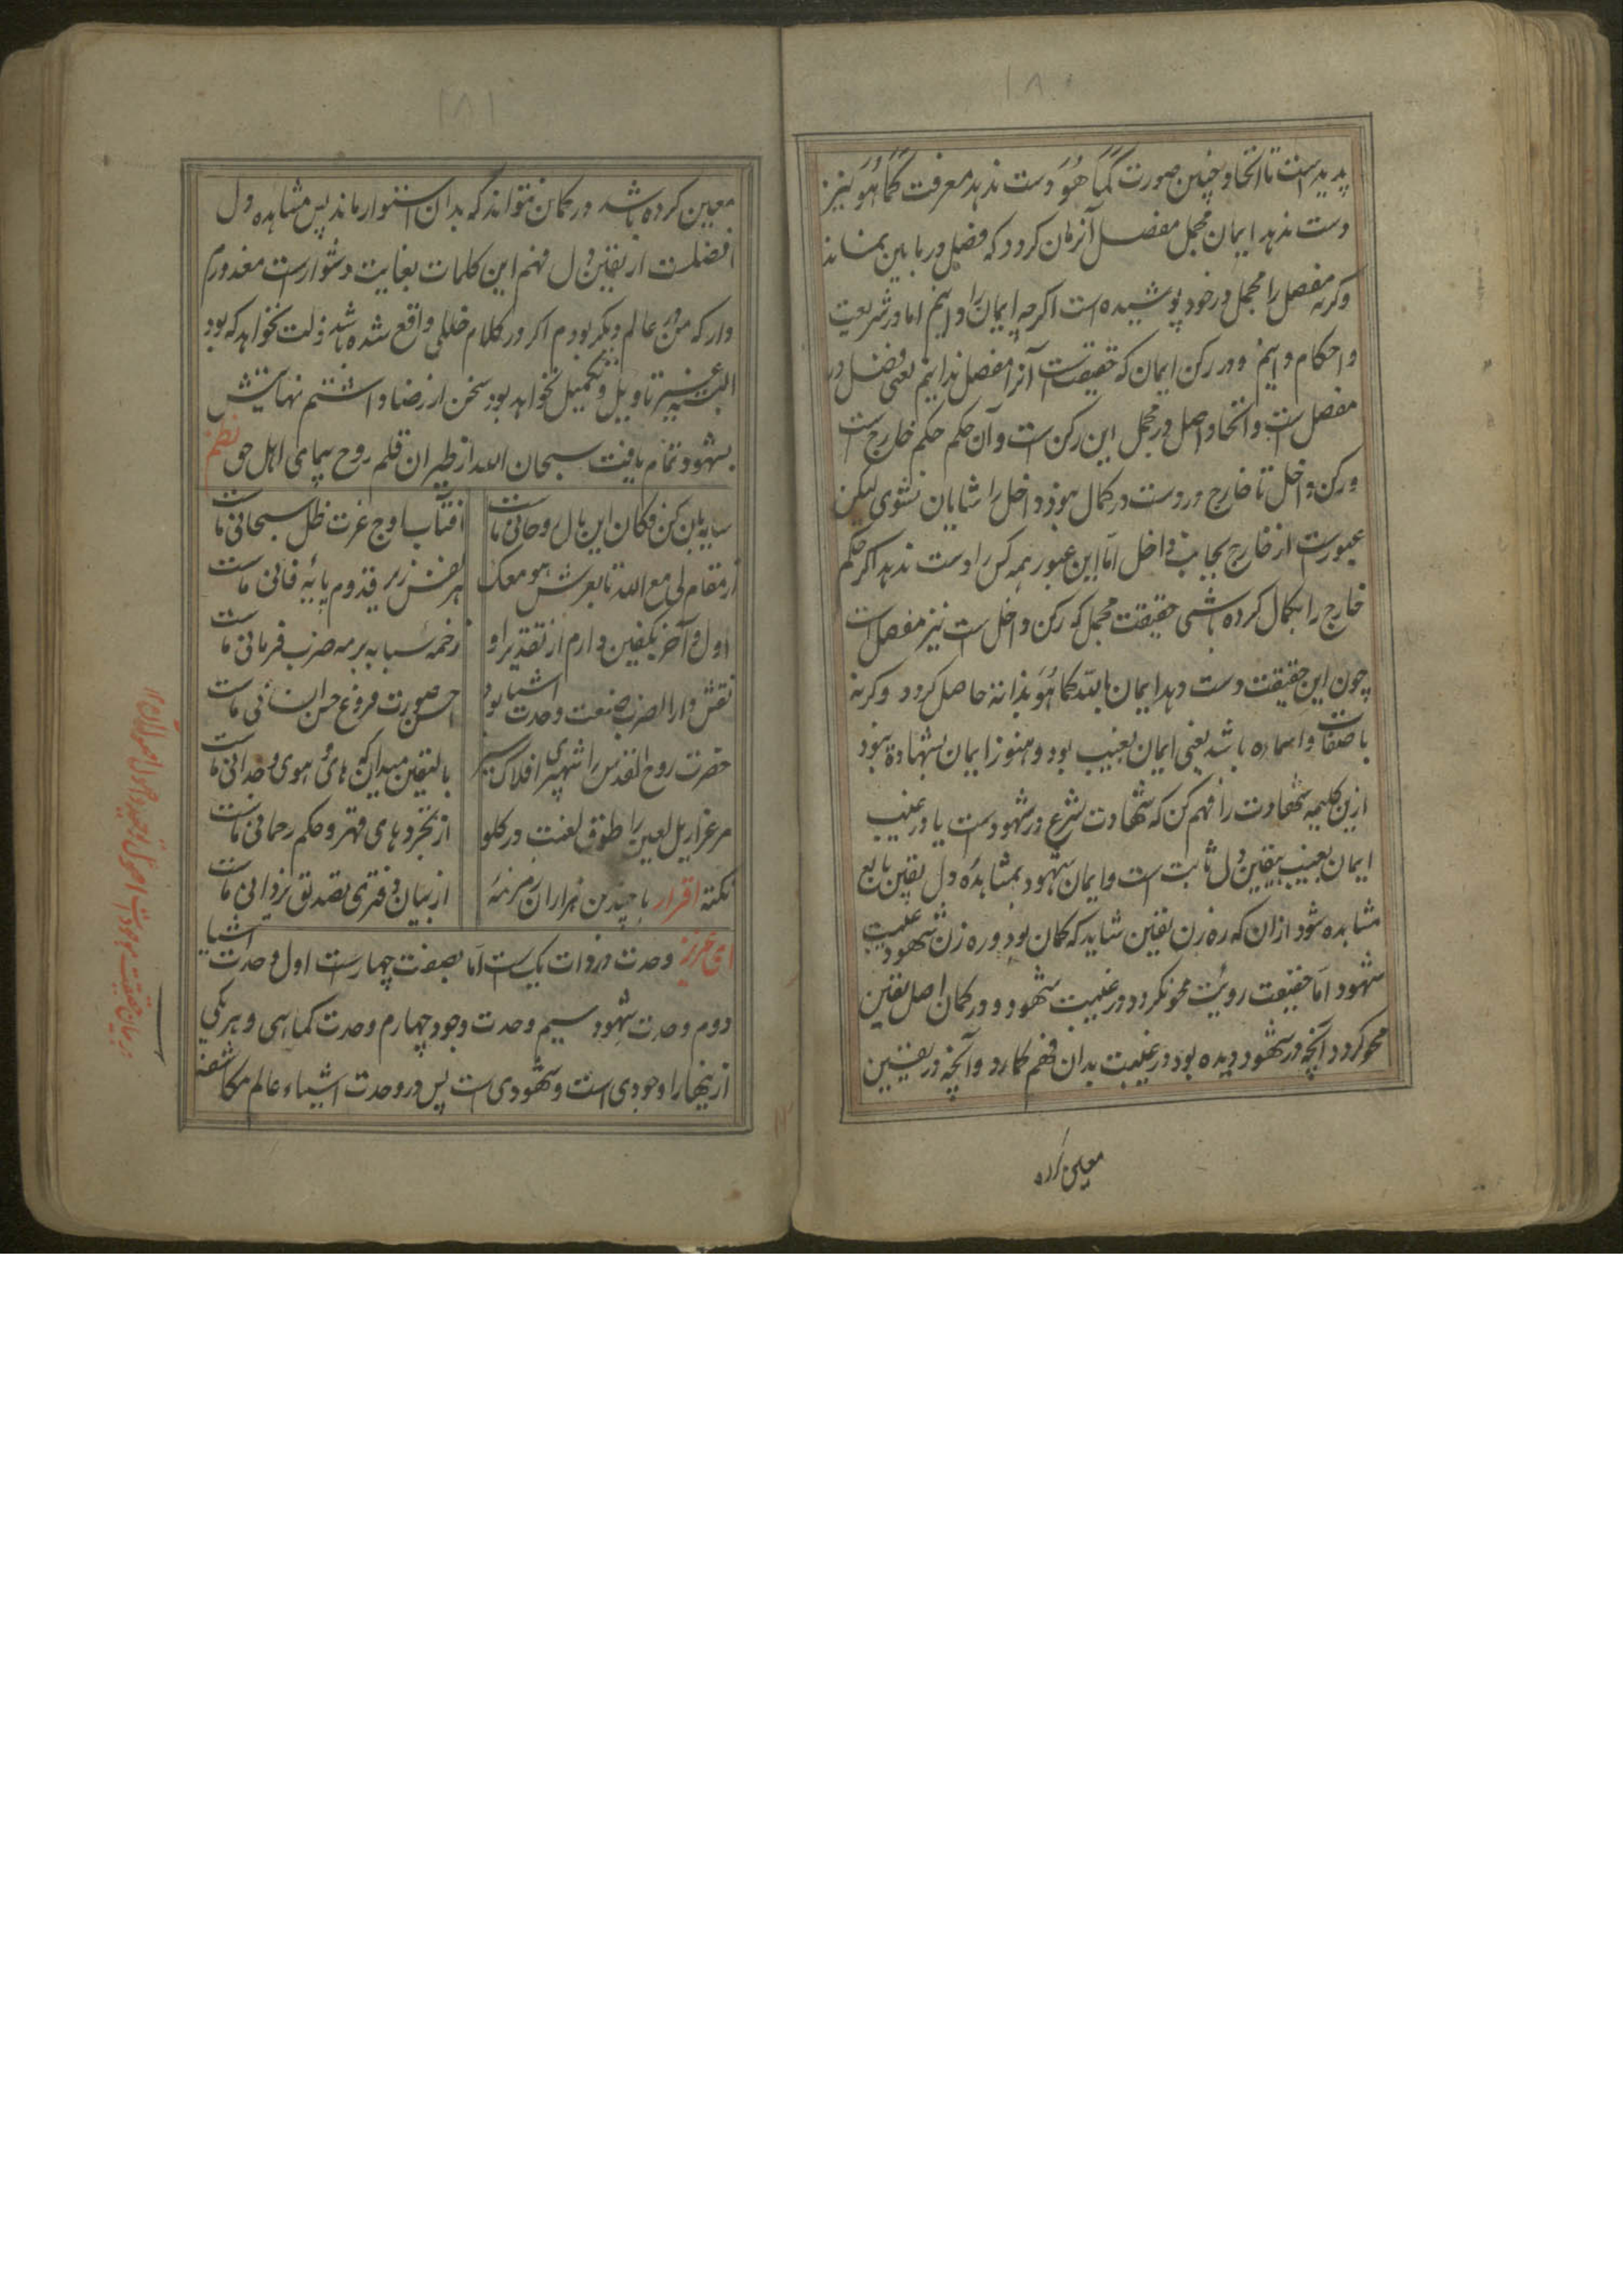 ۱۸۰
پدیدست تا اتحاد چنین صورت کَمَا هُوَ دست ندهد معرفت کَمَا هُوَ نیز
دست ندهد ایمان مجمل مفصل آنزمان کردد که فصل در مابین نماند
وکرنه مفصل را مجمل در خود پوشیده است اکرچه ایمان را دانیم اما در شریعت
و احکام دانیم و در رکن ایمان که حقیقت است آنرا مفصل ندانیم یعنی فصل در
مفصل است و اتحاد اصل در مجمل این رکن است و آن حکم حکم خارج است
و رکن داخل تا خارج درست در کمال نبود داخل را شایان نشوی لیکن
عبورست از خارج بجانب داخل اما این عبور همه کس را دست ندهد اکر حکم
خارج را بکمال کرده باشی حقیقت مجمل که رکن داخل ست نیز مفصل است
چون این حقیقت دست دهد ایمان بالله کما هُوَ بذاته حاصل کردد وکرنه
باصفات و اسماءه باشد یعنی ایمان بغیب بود و هنوز ایمان بشهادة نبود
ازین کلیمه شهادت را فهم کن که شهادت شرع در شهودست یا در غیب
ایمان بغیب بیقین دل ثابت است و ایمان شهود بمشاهدهٔ دل یقین تابع
مشاهده شود از ان که ره زن یقین شاید که کمان بود و ره زن شهود غیبت
شهود اما حقیقت رویت محو نکردد در غیبت شهود و در کمان اصل یقین
محو کردد آنچه در شهود دیده بود در غیبت بدان فهم کمارد و آنچه در یقین
معین کرده
۱۸۱
معین کرده باشد در کمان نتواند که بدان استوار ماند پس مشاهده دل
افضلست از یقین دل فهم این کلمات بغایت دشوارست معذورم
دار که من در عالم دیکر بودم اکر در کلام خللی واقع شده باشد ذلت نخواهد که بود
البته غیر تاویل و تکمیل نخواهد بود سخن از رضا داشتم نهایتش
بشهود تمام یافت سبحان الله از طیران قلم روح پیمای اهل حق نظم
سایه بان کن فکان این بال روحانی ماست
افتاب اوج عزت ظل سبحانی ماست
از مقام لی مع الله تا بعرش هو معک
هر نفس زیر قدوم پایه فانی ماست
اول و آخر بکفین دارم از تقدیر او
زخمه سبابه بر مه ضرب فرمانی ماست
نقش دار الضرب صنعت وحدت اشیا بود
احسن صورت فروغ حسن انسانی ماست
حضرت روح القدس را شهپری افلاک سیر
بالیقین میدان که های هوی وحدانی ماست
مر عزازیل لعین را طوق لعنت در کلو
از بخردهای قهر و حکم رحمانی ماست
نکته اقرار با چندین هزاران مرتبهٔ
از بیان دفتری تصدیق یزدانی ماست
ای عزیز وحدت در ذات یک است اما بصفت چهارست اول وحدت اشیا
دوم وحدت شهود سیم وحدت وجود چهارم وحدت کماهی و هر یکی
ازینها را وجودی است و شهودی است پس در وحدت اشیاء عالم مکاشفه
در بیان حقیقت